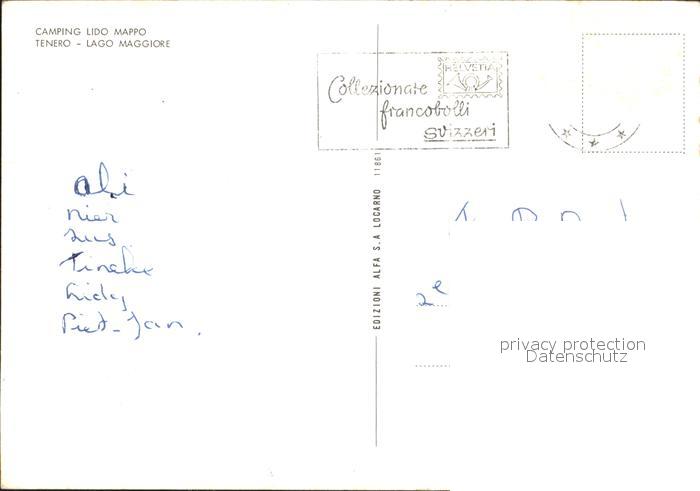 CAMPING LIDO MAPPO
TENERO – LAGO MAGGIORE
HELVETIA
Collezionate
francobolli
svizzeri
EDIZIONI ALFA S.A LOCARNO 11861
nier
zus
Tineke
Lidy
Piet-Jan.
2e
privacy protection
Datenschutz